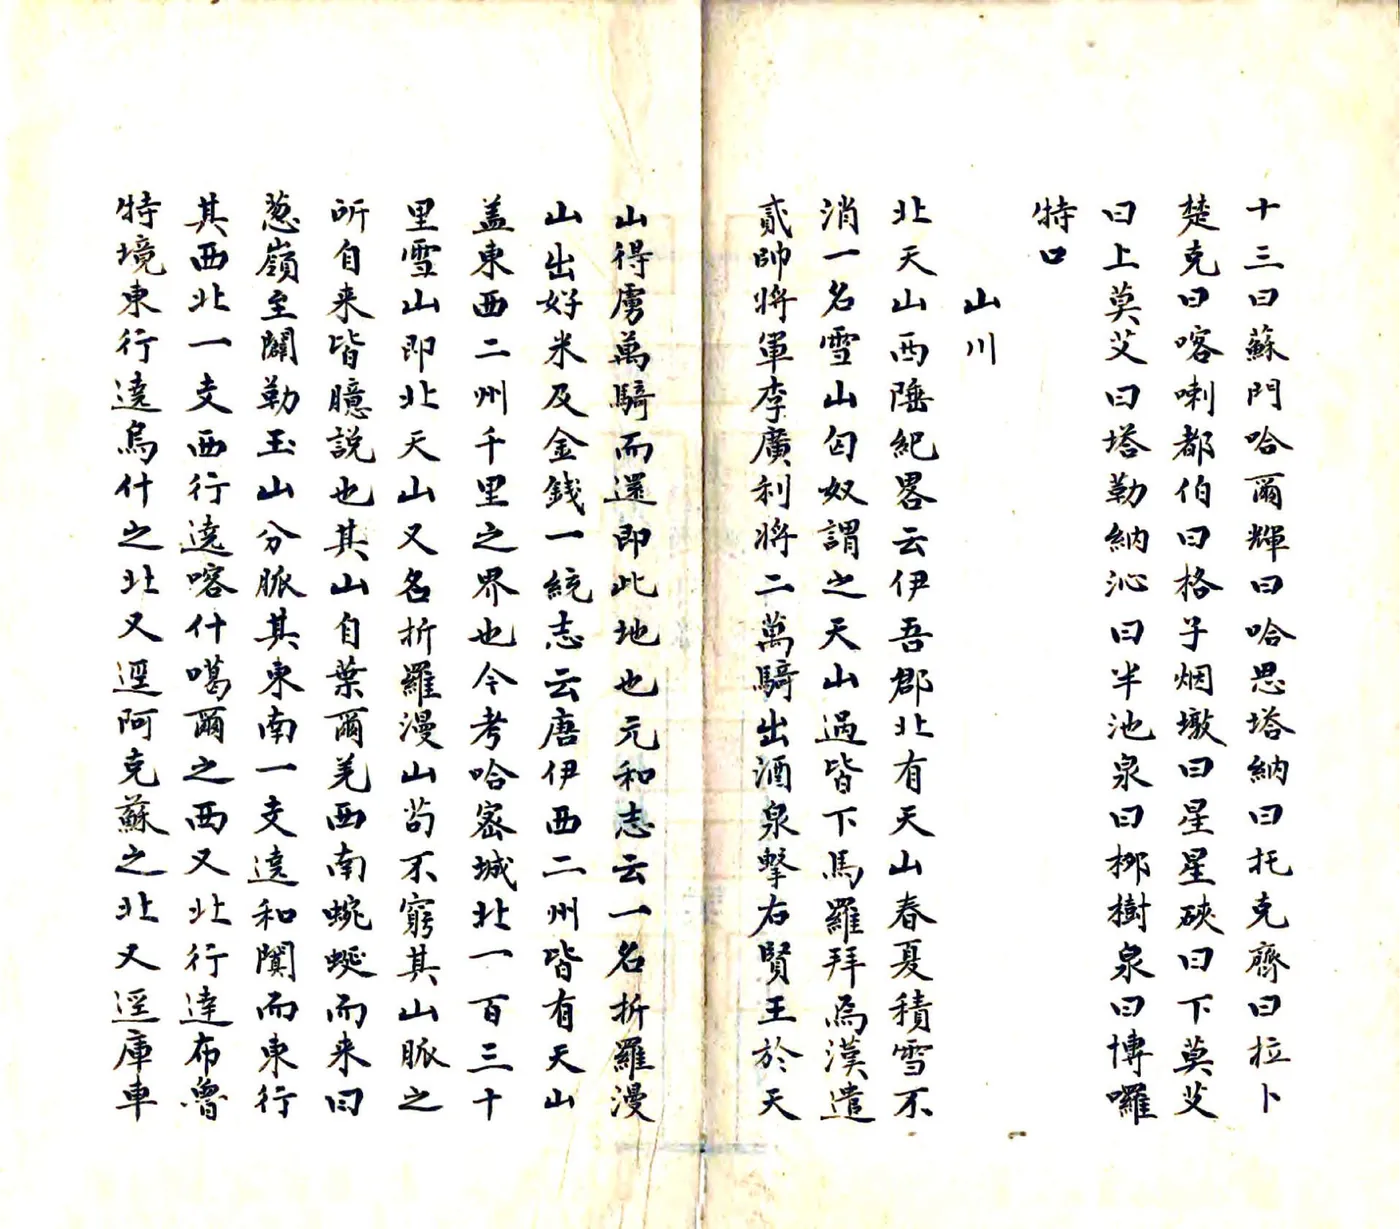 十三曰蘇門哈爾輝曰哈思塔納曰托克齊曰拉卜
楚克曰喀喇都伯曰格子烟墩曰星星硤曰下莫艾
曰上莫艾曰塔勒納沁曰半池泉曰梛樹泉曰博囉
特口
山川
北天山西陲紀畧云伊吾郡北有天山春夏積雪不
消一名雪山匈奴謂之天山過皆下馬羅拜焉漢遣
貳帥將軍李廣利將二萬騎出酒泉擊右賢王於天
山得虜萬騎而還即此地也元和志云一名折羅漫
山出好米及金錢一統志云唐伊西二州皆有天山
盖東西二州千里之界也今考哈宻城北一百三十
里雪山即北天山又名折羅漫山苟不窮其山脈之
所自来皆臆說也其山自葉爾羌西南蜿蜒而来曰
葱嶺至闢勒玉山分脈其東南一支遶和闐而東行
其西北一支西行遶喀什噶爾之西又北行達布魯
特境東行遶烏什之北又逕阿克蘇之北又逕庫車